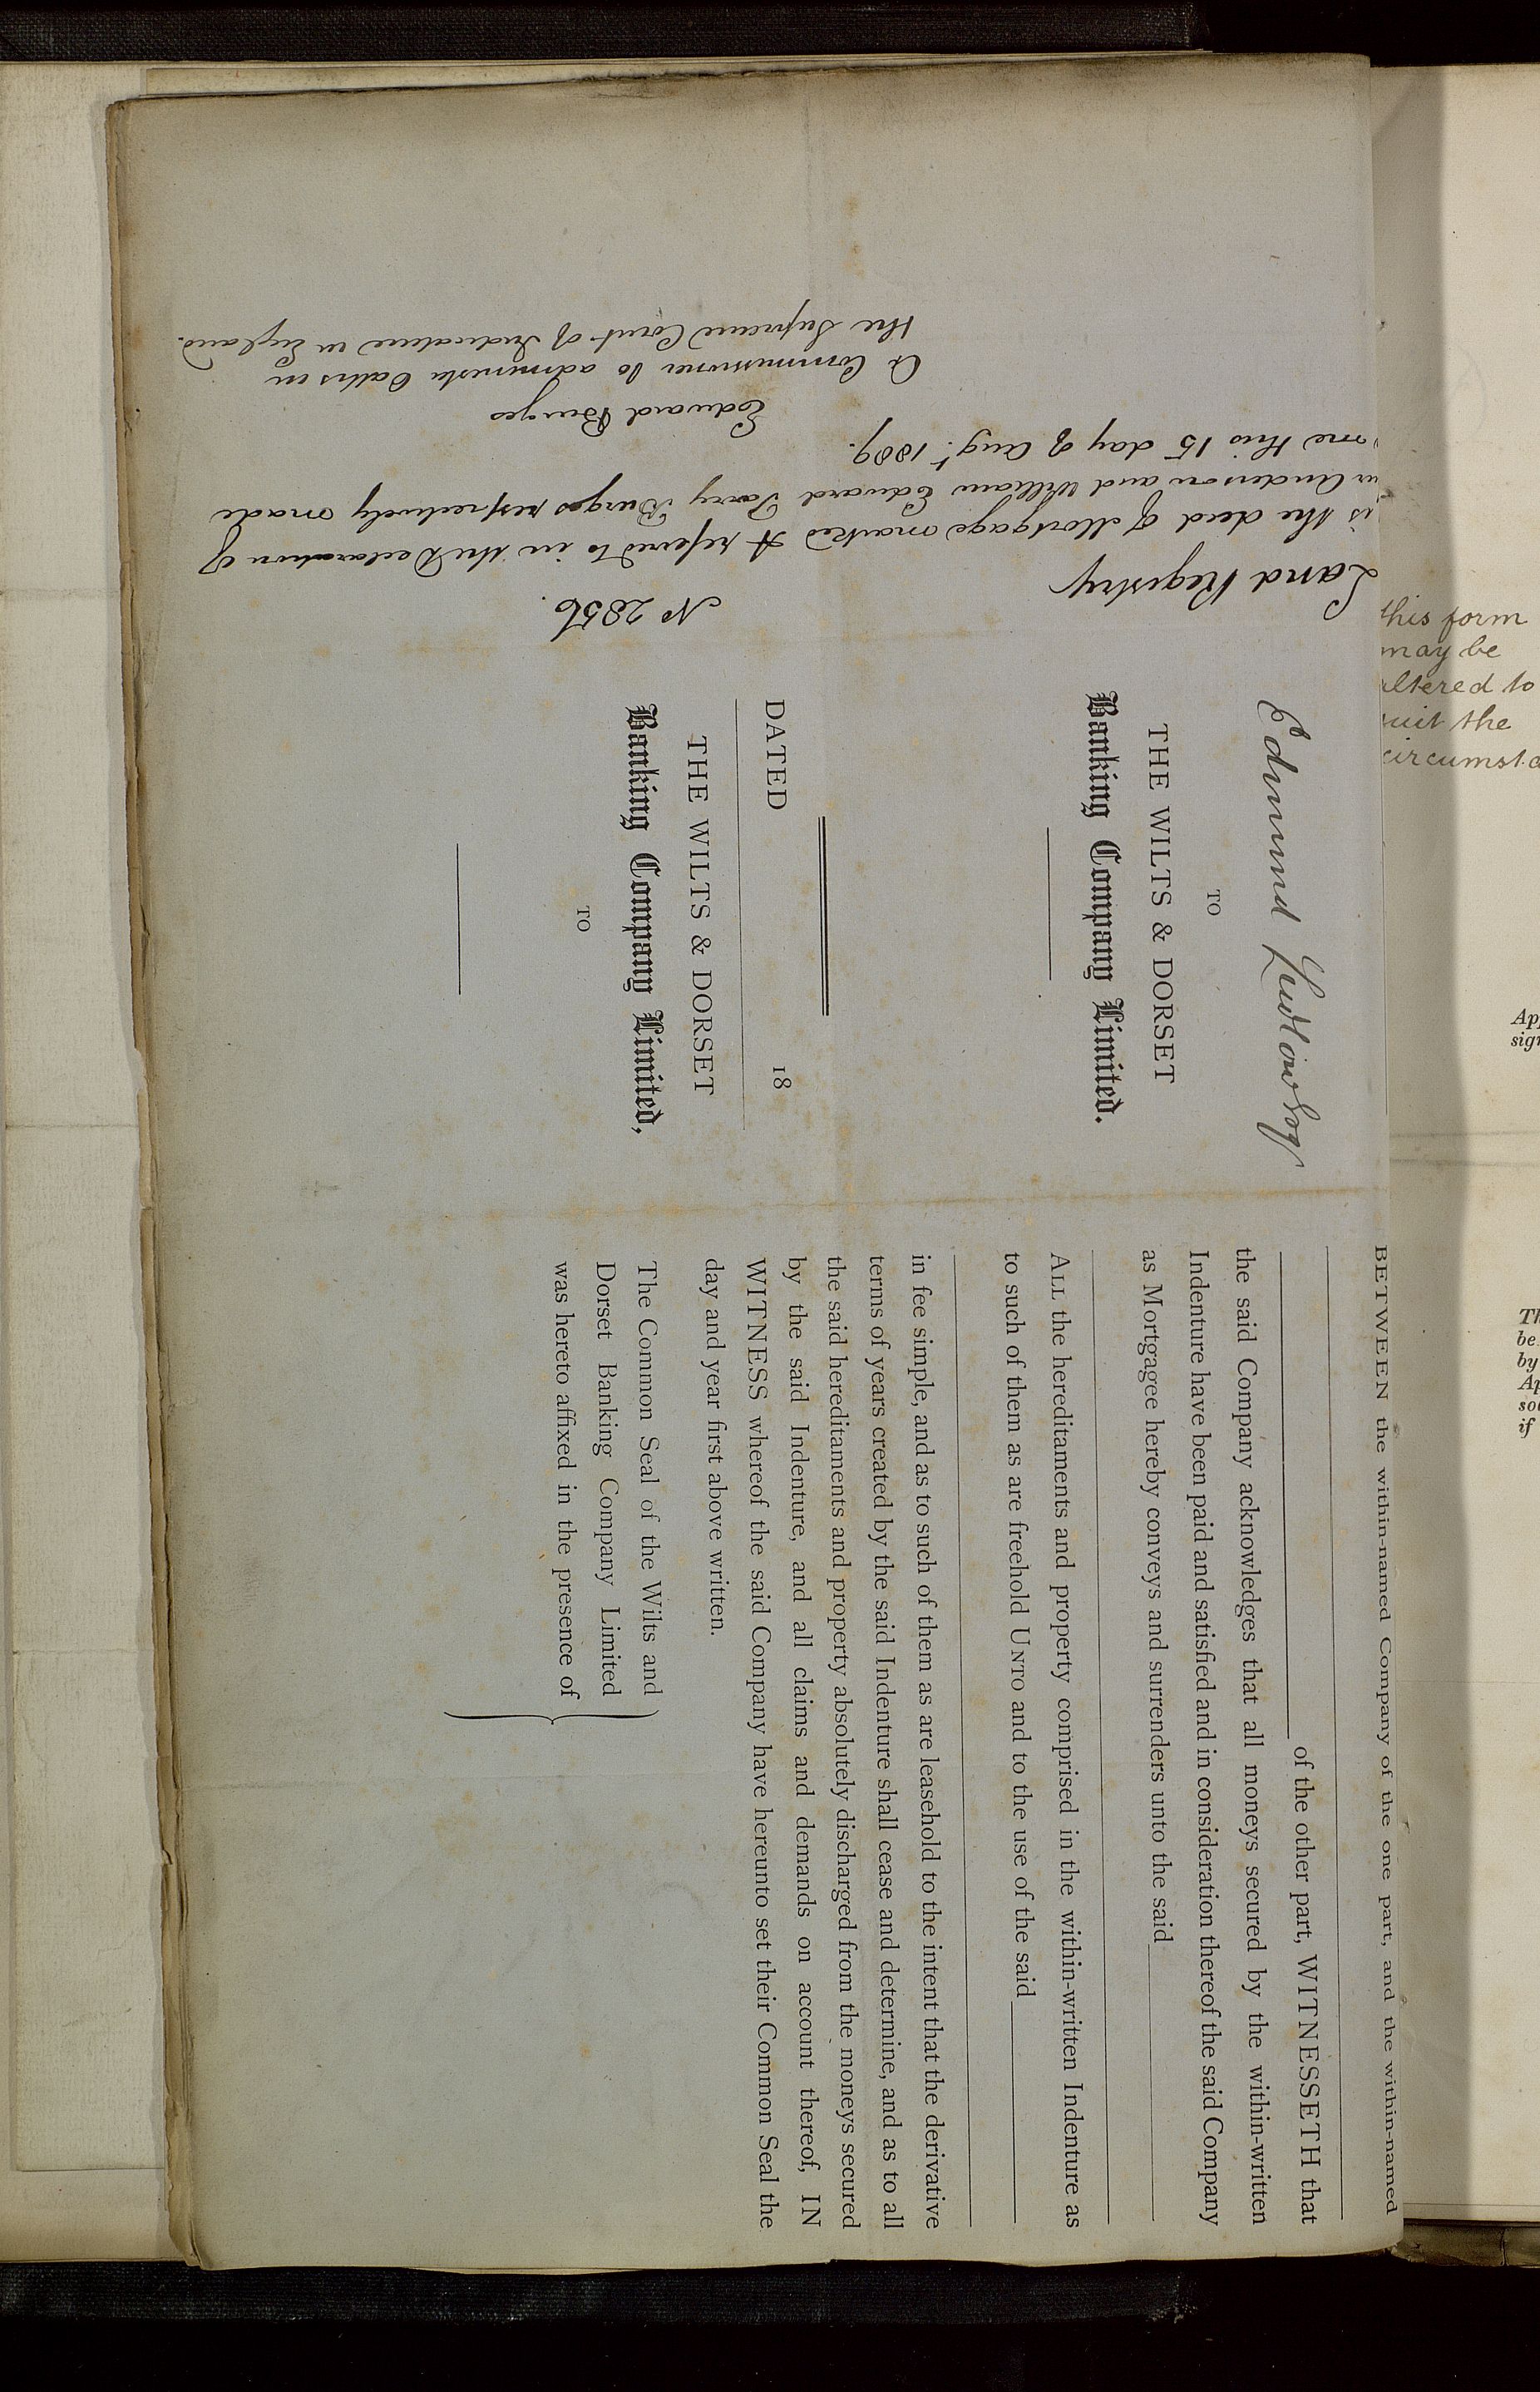 Edmund Ludlow Esq
TO
THE WILTS & DORSET
Banking Company Limited.
DATED 18
THE WILTS & DORSET
Banking Company Limited,
TO
BETWEEN the within-named Company of the one part, and the within-named
of the other part, WITNESSETH that
the said Company acknowledges that all moneys secured by the within-written
Indenture have been paid and satisfied and in consideration thereof the said Company
as Mortgagee hereby conveys and surrenders unto the said
ALL the hereditaments and property comprised in the within-written Indenture as
to such of them as are freehold UNTO and to the use of the said
in fee simple, and as to such of them as are leasehold to the intent that the derivative
terms of years created by the said Indenture shall cease and determine, and as to all
the said hereditaments and property absolutely discharged from the moneys secured
by the said Indenture, and all claims and demands on account thereof, IN
WITNESS whereof the said Company have hereunto set their Common Seal the
day and year first above written.
The Common Seal of the Wilts and
Dorset Banking Company Limited
was hereto affixed in the presence of
No 2856.
Land Registry
is the deed of Mortgage marked A referred to in the Declaration of
Anderson and William Edward Parry Burges respectively made
me this 15 day of Augt. 1889.
Edward Burges
A Commissioner to administer Oaths in
the Supreme Court of Judicature in England.
this form
may be
altered to
suit the
circumsta
Ap
sign
Th
be
by
Ap
sol
if